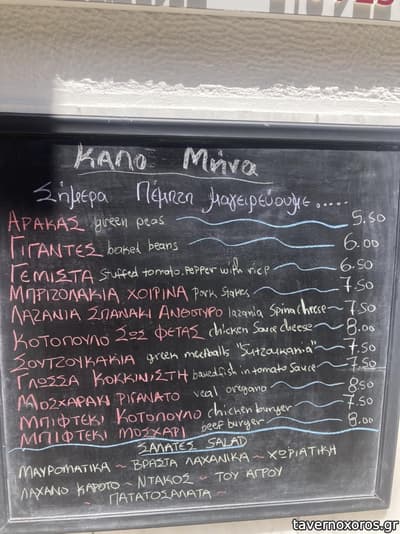 ΚΑΛΟ Μήνα
Σήμερα Πέμπτη μαγειρεύουμε.....
ΑΡΑΚΑΣ green peas 5.50
ΓΙΓΑΝΤΕΣ baked beans 6.00
ΓΕΜΙΣΤΑ stuffed tomato.pepper with rice 6.50
ΜΠΡΙΖΟΛΑΚΙΑ ΧΟΙΡΙΝΑ pork stakes 7.50
ΛΑΖΑΝΙΑ ΣΠΑΝΑΚΙ ΑΝΘΟΤΥΡΟ lazania Spina cheese 7.50
ΚΟΤΟΠΟΥΛΟ ΣΩΣ ΦΕΤΑΣ chicken Sauce cheese 8.00
ΣΟΥΤΖΟΥΚΑΚΙΑ green meatballs "Sutzoukania" 7.50
ΓΛΩΣΣΑ ΚΟΚΚΙΝΙΣΤΗ fish in tomato Sauce 7.50
ΜΟΣΧΑΡΑΚΙ ΡΙΓΑΝΑΤΟ veal oregano 8.50
ΜΠΙΦΤΕΚΙ ΚΟΤΟΠΟΥΛΟ chicken burger 7.50
ΜΠΙΦΤΕΚΙ ΜΟΣΧΑΡΙ beef burger 8.00
ΣΑΛΑΤΕΣ SALAD
ΜΑΥΡΟΜΑΤΙΚΑ ~ ΒΡΑΣΤΑ ΛΑΧΑΝΙΚΑ ~ ΧΩΡΙΑΤΙΚΗ
ΛΑΧΑΝΟ ΚΑΡΟΤΟ ~ ΝΤΑΚΟΣ ~ ΤΟΥ ΑΓΡΟΥ
~ ΠΑΤΑΤΟΣΑΛΑΤΑ ~
tavernoxoros.gr